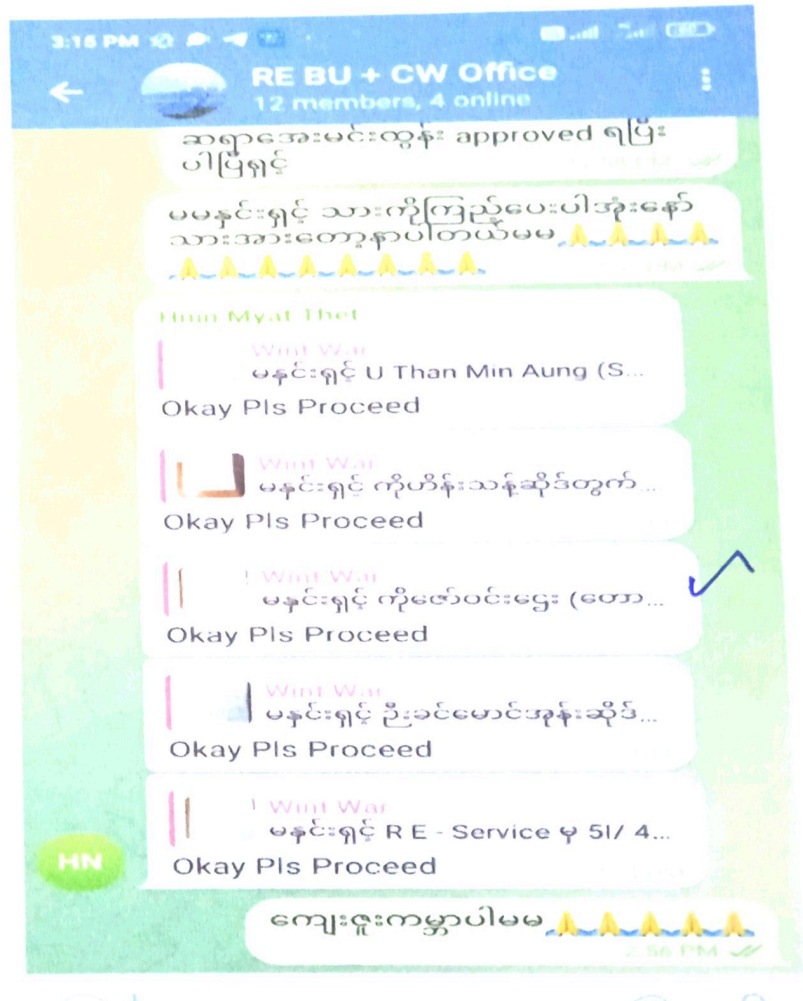 3:15 PM
RE BU + CW Office
12 members, 4 online
ဆရာအေးမင်းထွန်း approved ရပြီး
ပါပြီရှင့်
မမနှင်းရှင့် သားကိုကြည့်ပေးပါအုံးနော်
သားအားတော့နာပါတယ်မမ 🙏🙏🙏🙏
🙏🙏🙏🙏🙏🙏🙏🙏
Hnin Myat Thet
Wint War
မနှင်းရှင့် U Than Min Aung (S...
Okay Pls Proceed
Wint War
မနှင်းရှင့် ကိုဟိန်းသန့်ဆိုဒ်တွက်...
Okay Pls Proceed
Wint War
မနှင်းရှင့် ကိုဇော်ဝင်းဌေး (တော...
Okay Pls Proceed
Wint War
မနှင်းရှင့် ဦးခင်မောင်အုန်းဆိုဒ်...
Okay Pls Proceed
Wint War
မနှင်းရှင့် R E - Service မှ 5l/ 4...
Okay Pls Proceed
HN
ကျေးဇူးကမ္ဘာပါမမ 🙏🙏🙏🙏🙏
2:56 PM